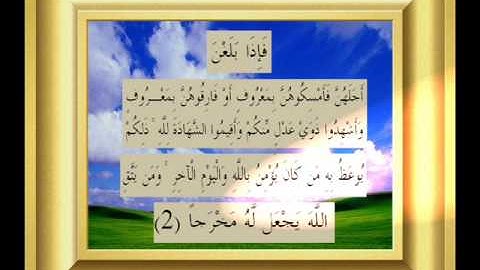 فَإِذَا بَلَغْنَ
أَجَلَهُنَّ فَأَمْسِكُوهُنَّ بِمَعْرُوفٍ أَوْ فَارِقُوهُنَّ بِمَعْرُوفٍ
وَأَشْهِدُوا ذَوَيْ عَدْلٍ مِّنكُمْ وَأَقِيمُوا الشَّهَادَةَ لِلَّهِ ۚ ذَلِكُمْ
يُوعَظُ بِهِ مَن كَانَ يُؤْمِنُ بِاللَّهِ وَالْيَوْمِ الْآخِرِ ۚ وَمَن يَتَّقِ
اللَّهَ يَجْعَل لَّهُ مَخْرَجاً (2)